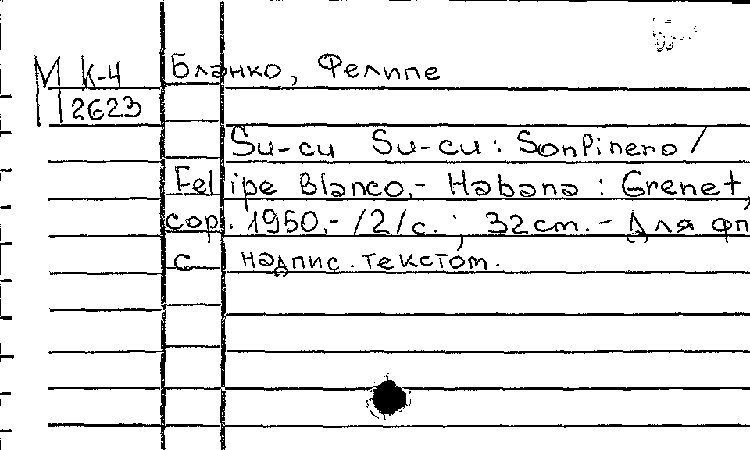 М К-4 Бланко, Фелипе
12623
Su-cu Su-cu: SonPinero /
Felipe Blanco.- Habana : Grenet,
cop. 1950.- /2/с. ; 32 cm. - Для фп
с надпис. текстом.